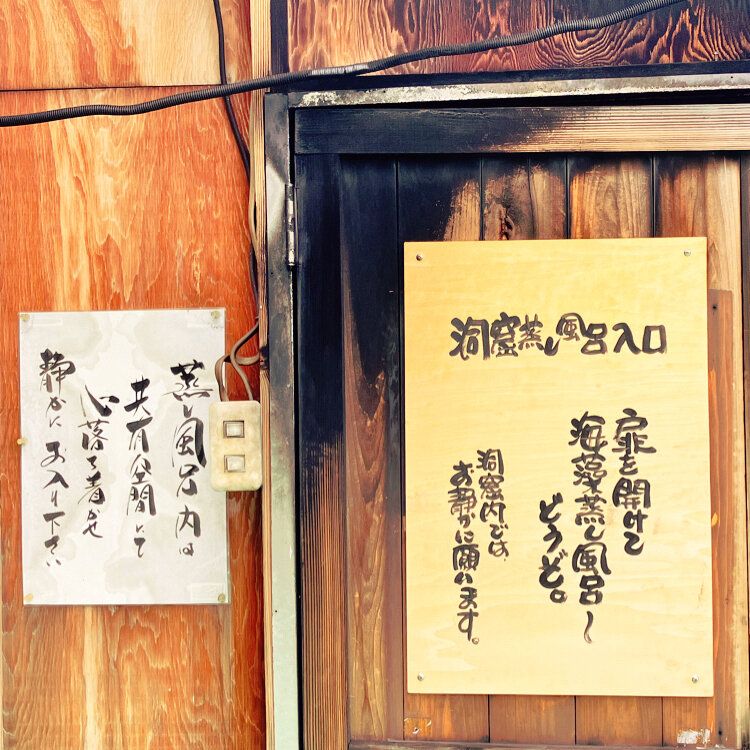 洞窟蒸し風呂入口
扉を開けて
海藻蒸し風呂へ
どうぞ。
洞窟内では、
お静かに願います。
蒸し風呂内は
共有空間にて
心落ち着かせ
静かにお入り下さい